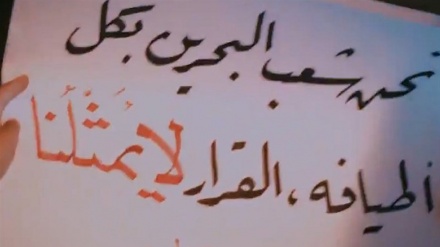 نحن شعب البحرين بكل
أطيافه، القرار لا يُمَثِّلُنا